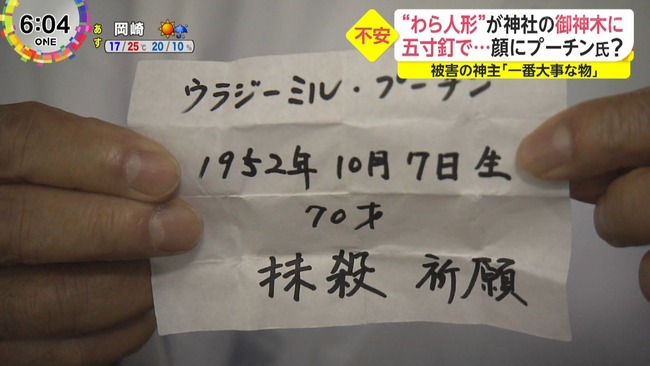 6:04
ONE
あす
岡崎
17/25℃ 20/10%
不安
“わら人形”が神社の御神木に
五寸釘で…顔にプーチン氏?
被害の神主「一番大事な物」
ウラジーミル・プーチン
1952年 10月 7日 生
70才
抹殺 祈願